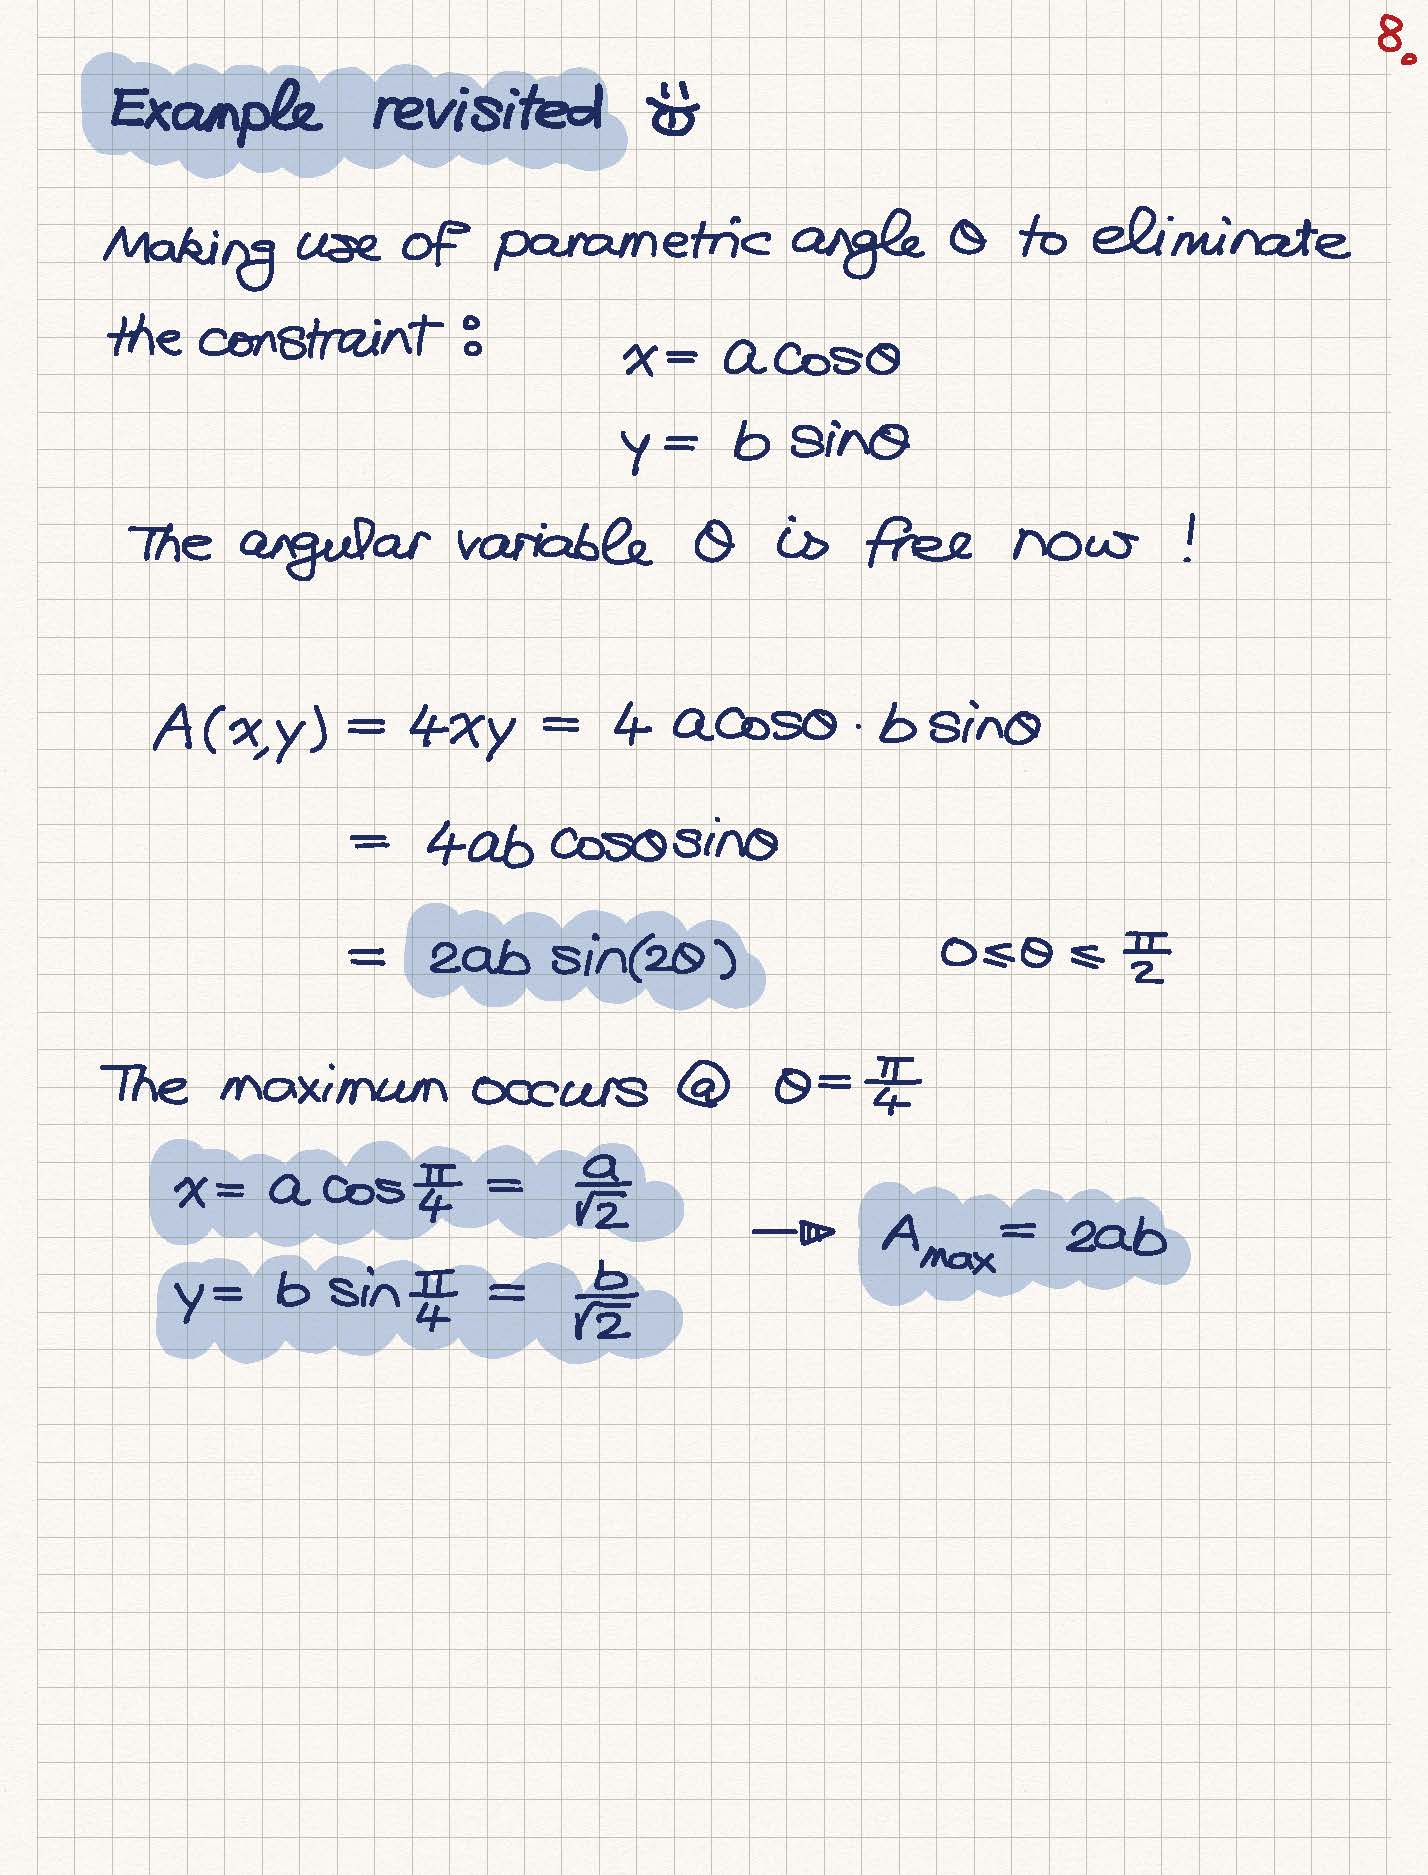 8.
Example revisited
Making use of parametric angle θ to eliminate
the constraint :
x = a cosθ
y = b sinθ
The angular variable θ is free now !
A(x,y) = 4xy = 4 a cosθ · b sinθ
= 4ab cosθ sinθ
= 2ab sin(2θ) 0 ≤ θ ≤ π/2
The maximum occurs @ θ = π/4
x = a cos π/4 = a/√2
→ A_max = 2ab
y = b sin π/4 = b/√2